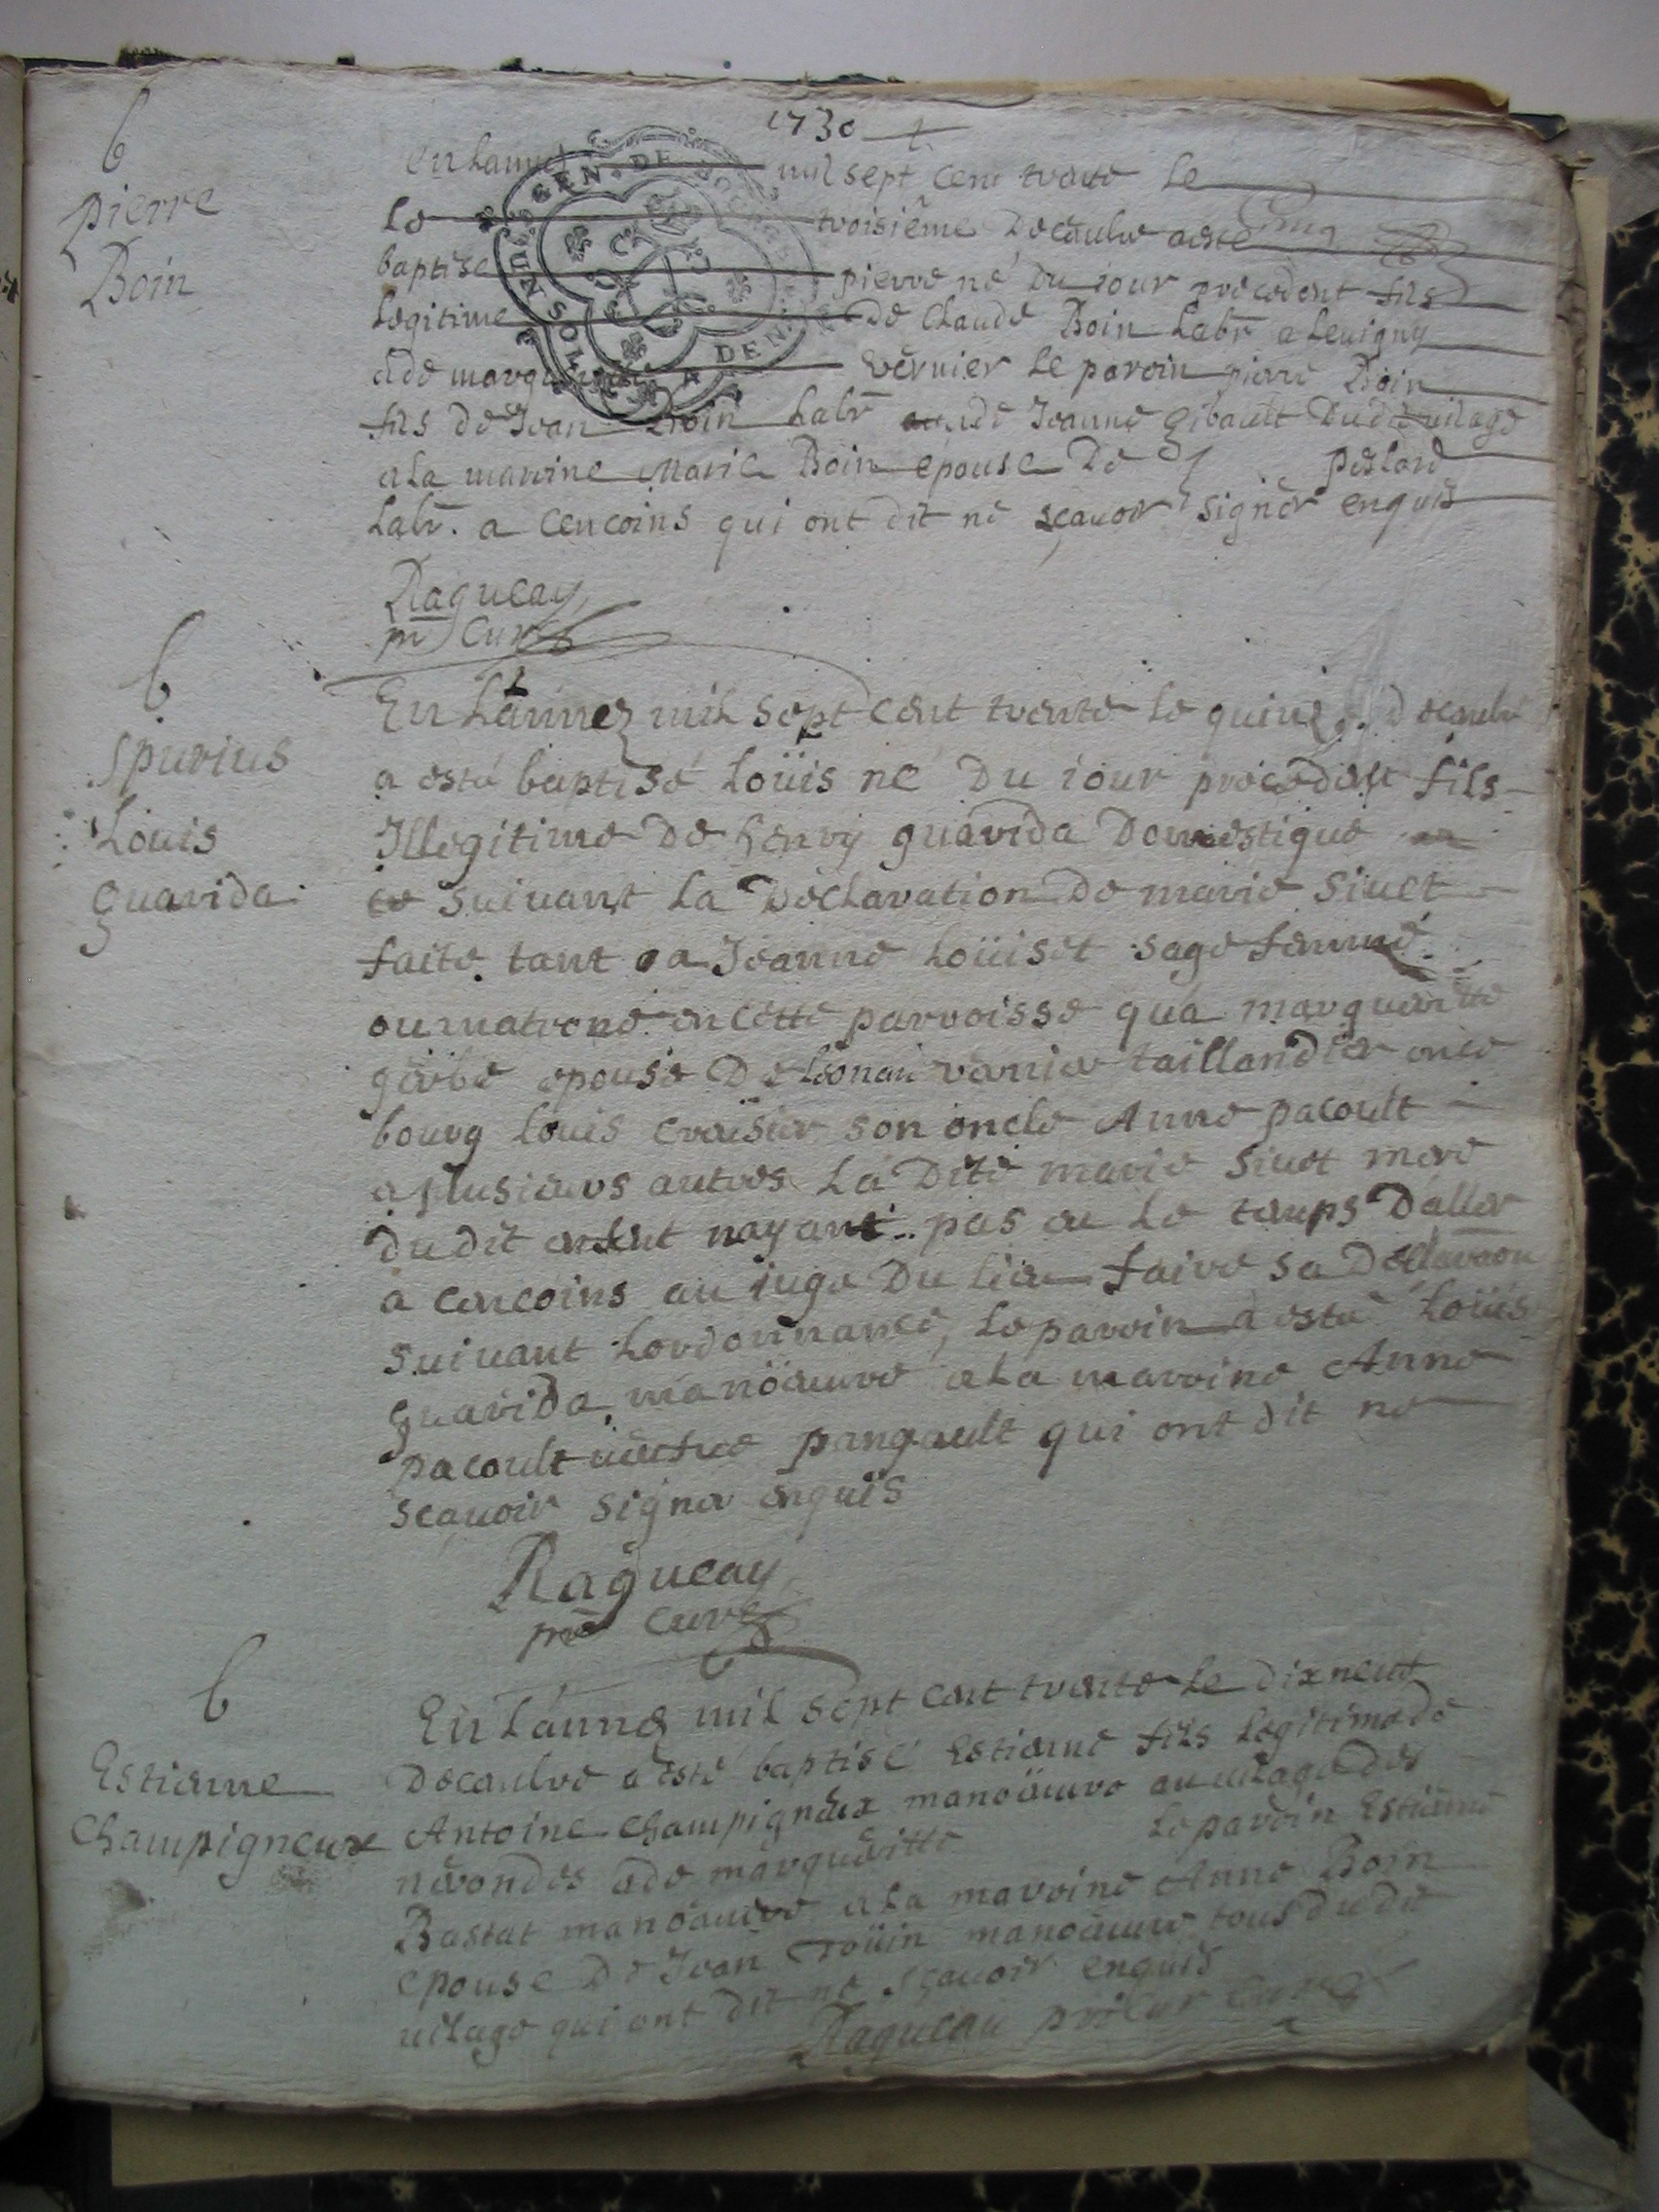 1730
b
pierre
Boin
En Lannee mil sept cent trante Le
Le troisiéme Decaubre aesté
baptise pierre né Du iour precedent fils
Legitime De Claude Boin Labr a Leuigny
ade margueritte Vernier Le paroin pierre Boin
fils de Jean Boin Labr ade Jeanne Gibault Dudit uilage
ala marine Marie Boin epouse De peslard
Labr. a Cencoins qui ont dit ne sçauoir signer enquis
Ragueau
pr Curé
b
Spurius
Louis
Guarida
En Lannee mil sept cent trante Le quinz Decaubre
a esté baptisé Loüis né Du iour precedant fils
Illegitime De henry guarida Domestique
suiuant La Déclaration De marie Siuet
faite tant a Jeanne Loüiset sage famme
ou matrone en cette parroisse qua margueritte
epouse De Leonar varnier taillandier ence
bourg Louis Craisier son oncle Anne pacoult
a plusieurs autres La Dite marie Siuet mere
du dit enfant nayant pas eu Le tamps Daller
a Cencoins au iuge Du lieu faire sa Declaraon
suiuant Lordonnance, Leparoin a esté Loüis
Guarida manöuure ala maroine Anne
pacoult uefue pangault qui ont dit ne
scauoir signer enquis
Ragueau
pr Curé
b
Estienne
Champigneux
En Lannee mil sept cent trante Le dixneuf
Decaubre a esté baptisé Estienne fils Legitime de
Antoine Champigneux manöuure au uilage Des
nérondes ade margueritte Leparoin Estienne
Bastat manöuure ala maroine Anne Boin
epouse De Jean manöuure tous dudit
uilage qui ont dit ne sçauoir enquis
Ragueau prieur Curé